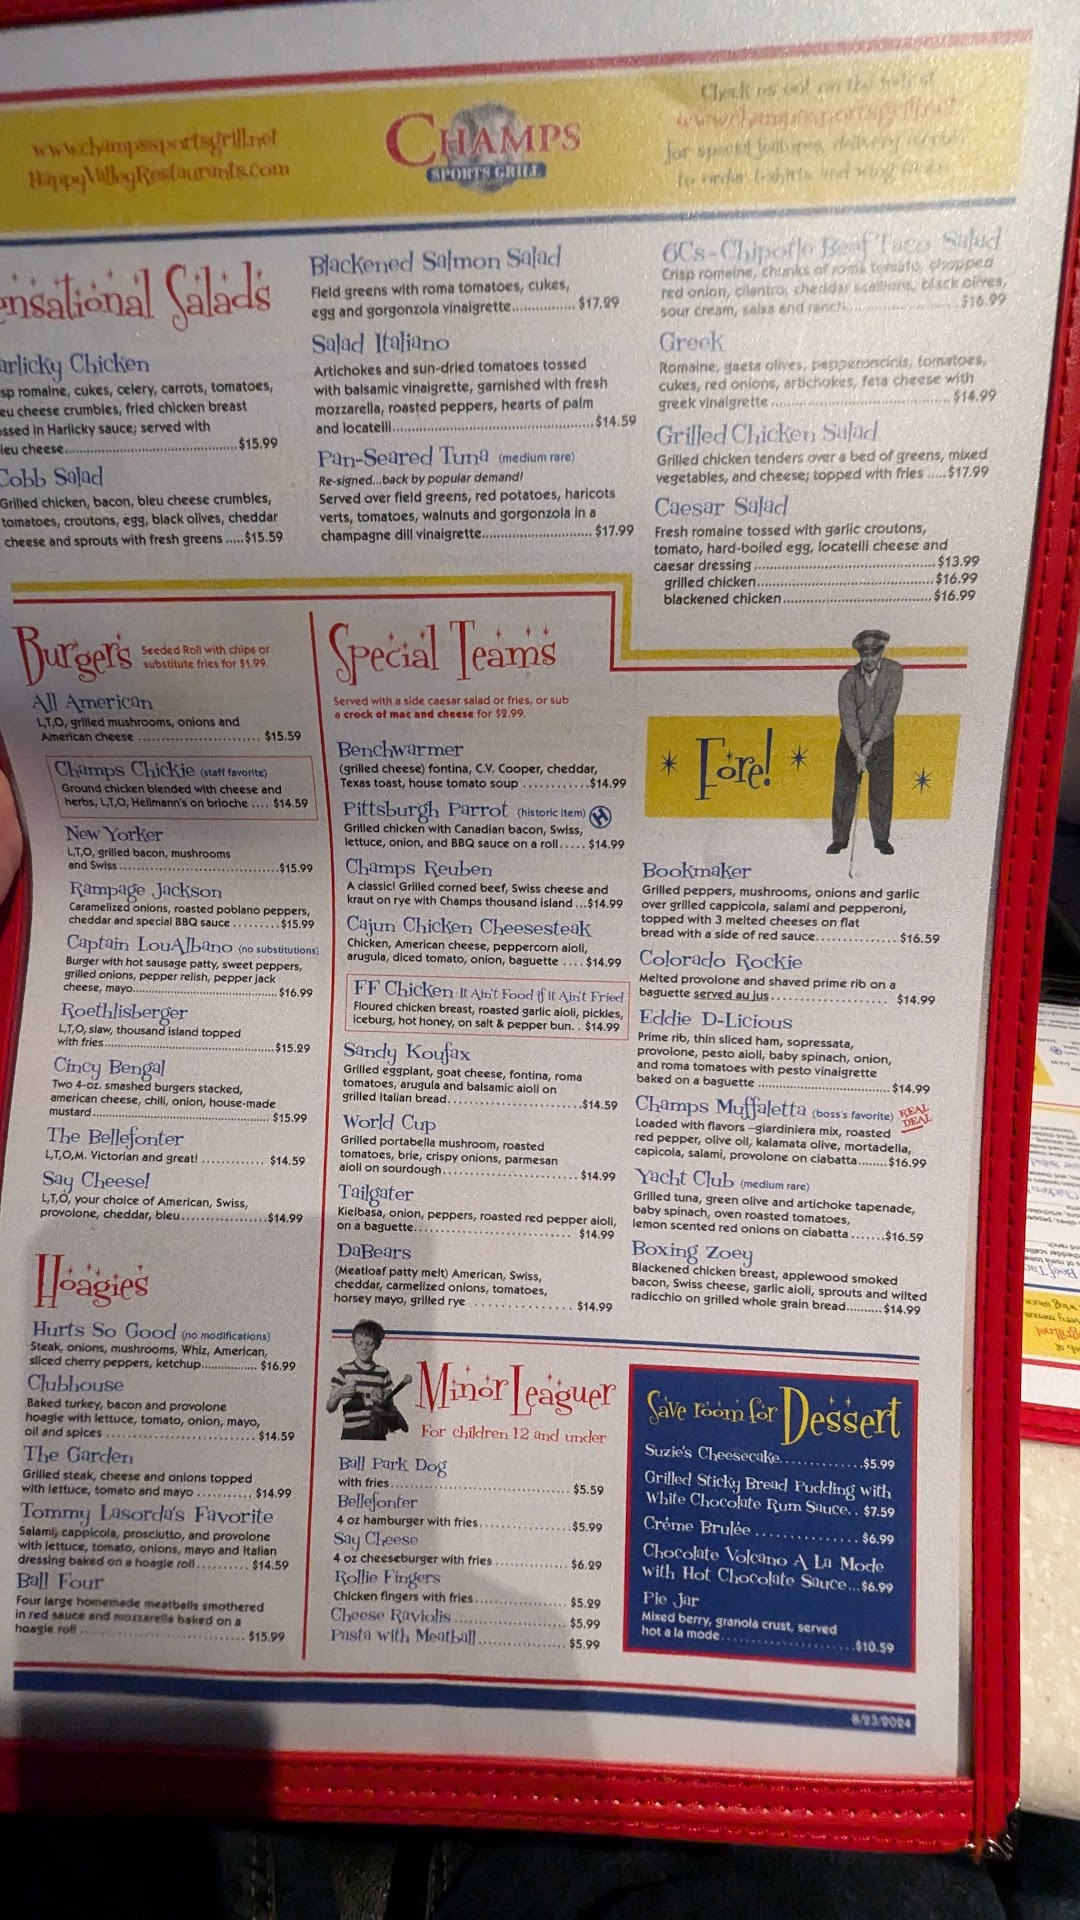 www.champssportsgrill.net
HappyValleyRestaurants.com
CHAMPS
SPORTS GRILL
Check us out on the web at
www.champssportsgrill.net
for special features, delivery menus
to order t-shirts and wing sauce
ensational Salads
arlicky Chicken
sp romaine, cukes, celery, carrots, tomatoes,
eu cheese crumbles, fried chicken breast
ossed in Harlicky sauce; served with
leu cheese.......$15.99
Cobb Salad
Grilled chicken, bacon, bleu cheese crumbles,
tomatoes, croutons, egg, black olives, cheddar
cheese and sprouts with fresh greens .....$15.59
Blackened Salmon Salad
Field greens with roma tomatoes, cukes,
egg and gorgonzola vinaigrette.......$17.29
Salad Italiano
Artichokes and sun-dried tomatoes tossed
with balsamic vinaigrette, garnished with fresh
mozzarella, roasted peppers, hearts of palm
and locatelli.......$14.59
Pan-Seared Tuna (medium rare)
Re-signed...back by popular demand!
Served over field greens, red potatoes, haricots
verts, tomatoes, walnuts and gorgonzola in a
champagne dill vinaigrette.......$17.99
6Cs-Chipotle Beef Taco Salad
Crisp romaine, chunks of roma tomato, chopped
red onion, cilantro, cheddar scallions, black olives,
sour cream, salsa and ranch.......$16.99
Greek
Romaine, gaeta olives, pepperoncinis, tomatoes,
cukes, red onions, artichokes, feta cheese with
greek vinaigrette.......$14.99
Grilled Chicken Salad
Grilled chicken tenders over a bed of greens, mixed
vegetables, and cheese; topped with fries .....$17.99
Caesar Salad
Fresh romaine tossed with garlic croutons,
tomato, hard-boiled egg, locatelli cheese and
caesar dressing.......$13.99
grilled chicken.......$16.99
blackened chicken.......$16.99
Burgers
Seeded Roll with chips or
substitute fries for $1.99.
All American
L,T,O, grilled mushrooms, onions and
American cheese .......$15.59
Champs Chickie (staff favorite)
Ground chicken blended with cheese and
herbs, L,T,O, Hellmann's on brioche .... $14.59
New Yorker
L,T,O, grilled bacon, mushrooms
and Swiss.......$15.99
Rampage Jackson
Caramelized onions, roasted poblano peppers,
cheddar and special BBQ sauce .........$15.99
Captain LouAlbano (no substitutions)
Burger with hot sausage patty, sweet peppers,
grilled onions, pepper relish, pepper jack
cheese, mayo.......$16.99
Roethlisberger
L,T,O, slaw, thousand island topped
with fries.......$15.29
Cincy Bengal
Two 4-oz. smashed burgers stacked,
american cheese, chili, onion, house-made
mustard.......$15.99
The Bellefonter
L,T,O,M. Victorian and great! ............ $14.59
Say Cheese!
L,T,O, your choice of American, Swiss,
provolone, cheddar, bleu.......$14.99
Hoagies
Hurts So Good (no modifications)
Steak, onions, mushrooms, Whiz, American,
sliced cherry peppers, ketchup.......$16.99
Clubhouse
Baked turkey, bacon and provolone
hoagie with lettuce, tomato, onion, mayo,
oil and spices .......$14.59
The Garden
Grilled steak, cheese and onions topped
with lettuce, tomato and mayo ........... $14.99
Tommy Lasorda's Favorite
Salami, cappicola, prosciutto, and provolone
with lettuce, tomato, onions, mayo and Italian
dressing baked on a hoagie roll.......... $14.59
Ball Four
Four large homemade meatballs smothered
in red sauce and mozzarella baked on a
hoagie roll .......$15.99
Special Teams
Served with a side caesar salad or fries, or sub
a crock of mac and cheese for $2.99.
Benchwarmer
(grilled cheese) fontina, C.V. Cooper, cheddar,
Texas toast, house tomato soup ...........$14.99
Pittsburgh Parrot (historic item) H
Grilled chicken with Canadian bacon, Swiss,
lettuce, onion, and BBQ sauce on a roll..... $14.99
Champs Reuben
A classic! Grilled corned beef, Swiss cheese and
kraut on rye with Champs thousand island ...$14.99
Cajun Chicken Cheesesteak
Chicken, American cheese, peppercorn aioli,
arugula, diced tomato, onion, baguette .... $14.99
FF Chicken It Ain't Food if It Ain't Fried
Floured chicken breast, roasted garlic aioli, pickles,
iceburg, hot honey, on salt & pepper bun. . $14.99
Sandy Koufax
Grilled eggplant, goat cheese, fontina, roma
tomatoes, arugula and balsamic aioli on
grilled Italian bread.......$14.59
World Cup
Grilled portabella mushroom, roasted
tomatoes, brie, crispy onions, parmesan
aioli on sourdough.......$14.99
Tailgater
Kielbasa, onion, peppers, roasted red pepper aioli,
on a baguette.......$14.99
DaBears
(Meatloaf patty melt) American, Swiss,
cheddar, carmelized onions, tomatoes,
horsey mayo, grilled rye .......$14.99
Fore!
Bookmaker
Grilled peppers, mushrooms, onions and garlic
over grilled cappicola, salami and pepperoni,
topped with 3 melted cheeses on flat
bread with a side of red sauce............... $16.59
Colorado Rockie
Melted provolone and shaved prime rib on a
baguette served au jus....................... $14.99
Eddie D-Licious
Prime rib, thin sliced ham, sopressata,
provolone, pesto aioli, baby spinach, onion,
and roma tomatoes with pesto vinaigrette
baked on a baguette .......$14.99
Champs Muffaletta (boss's favorite) REAL DEAL
Loaded with flavors –giardiniera mix, roasted
red pepper, olive oil, kalamata olive, mortadella,
capicola, salami, provolone on ciabatta........$16.99
Yacht Club (medium rare)
Grilled tuna, green olive and artichoke tapenade,
baby spinach, oven roasted tomatoes,
lemon scented red onions on ciabatta .......$16.59
Boxing Zoey
Blackened chicken breast, applewood smoked
bacon, Swiss cheese, garlic aioli, sprouts and wilted
radicchio on grilled whole grain bread.......... $14.99
Minor Leaguer
For children 12 and under
Ball Park Dog
with fries.......$5.59
Bellefonter
4 oz hamburger with fries.......$5.99
Say Cheese
4 oz cheeseburger with fries .......$6.29
Rollie Fingers
Chicken fingers with fries.......$5.29
Cheese Raviolis.......$5.99
Pasta with Meatball.......$5.99
Save room for Dessert
Suzie's Cheesecake.......$5.99
Grilled Sticky Bread Pudding with
White Chocolate Rum Sauce.. $7.59
Créme Brulée .......$6.99
Chocolate Volcano A La Mode
with Hot Chocolate Sauce...$6.99
Pie Jar
Mixed berry, granola crust, served
hot a la mode.......$10.59
8/23/2024